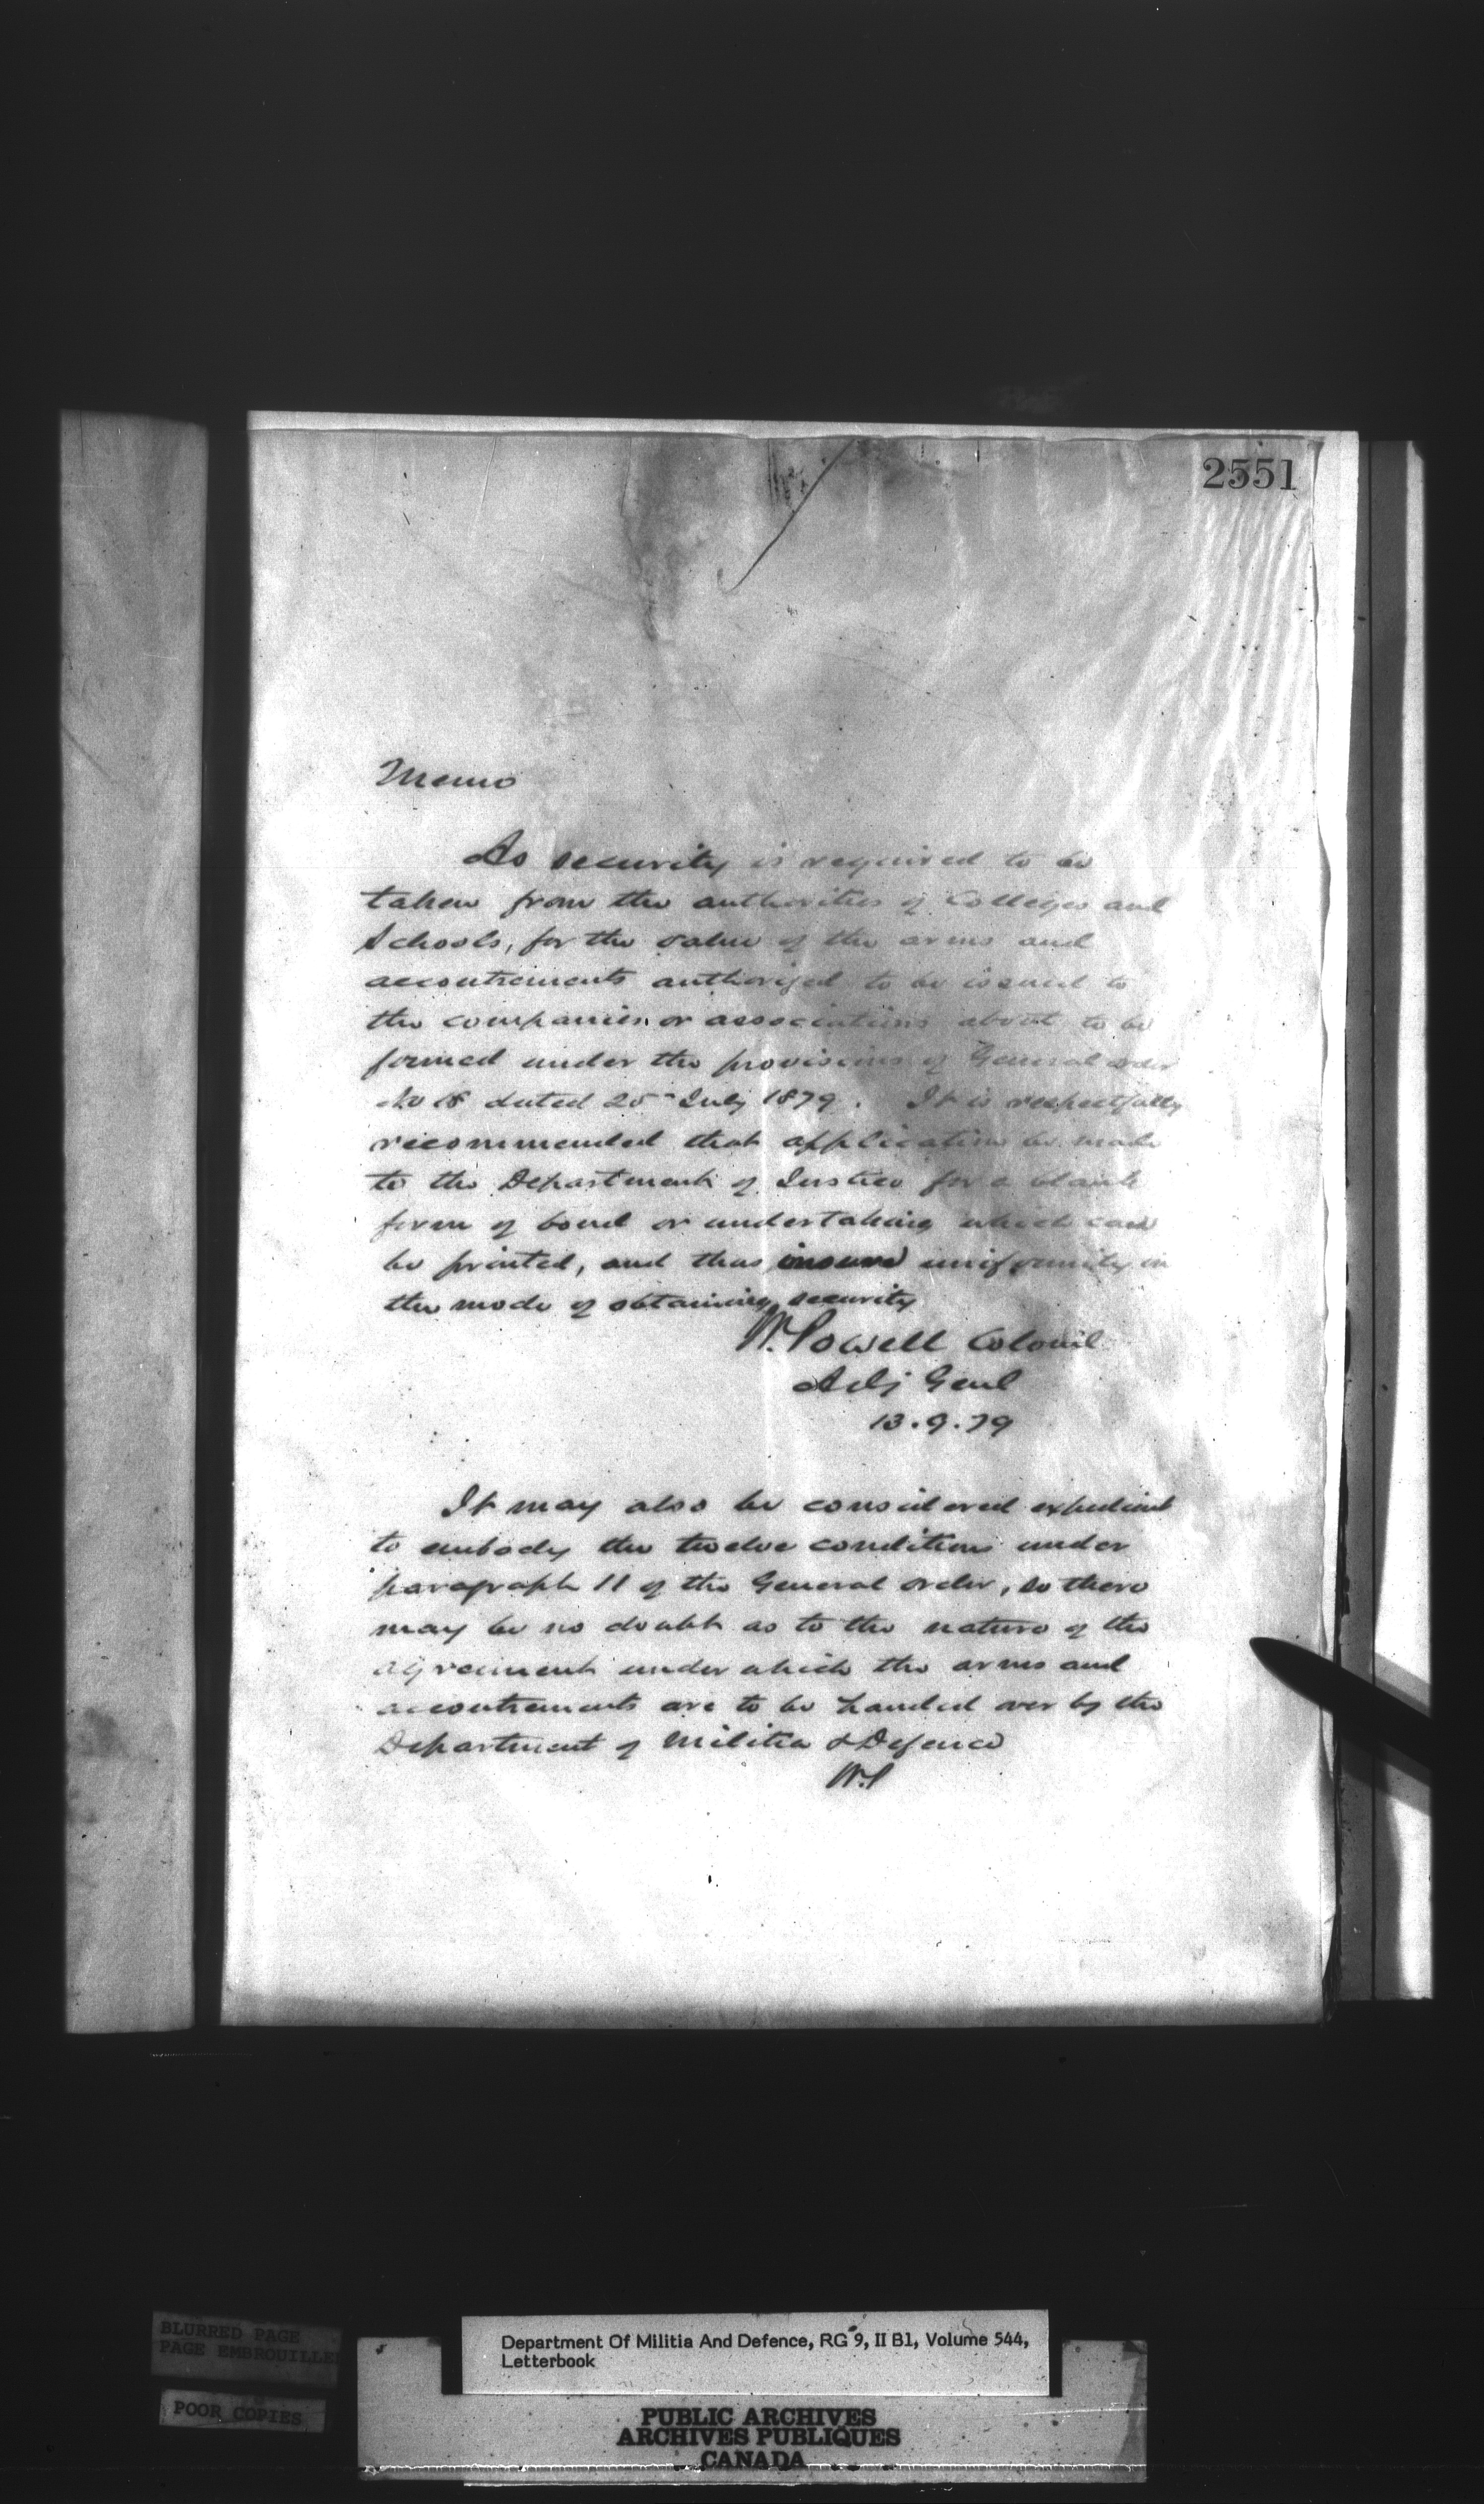 2551
Memo
As security is required to be
taken from the authorities of Colleges and
Schools, for the value of the arms and
accoutrements authorized to be issued to
the companies or associations about to be
formed under the provisions of General order
No 18 dated 25 July 1879. It is respectfully
recommended that application be made
to the Department of Justice for a blank
form of bond or undertaking which can
be printed, and thus insure uniformity in
the mode of obtaining security
W. Powell Colonel
Adj Genl
13.9.79
It may also be considered expedient
to embody the twelve conditions under
paragraph 11 of the General order, so there
may be no doubt as to the nature of the
agreement under which the arms and
accoutrements are to be handed over by the
Department of Militia & Defence
W.P
BLURRED PAGE
PAGE EMBROUILLE
POOR COPIES
Department Of Militia And Defence, RG 9, II B1, Volume 544,
Letterbook
PUBLIC ARCHIVES
ARCHIVES PUBLIQUES
CANADA